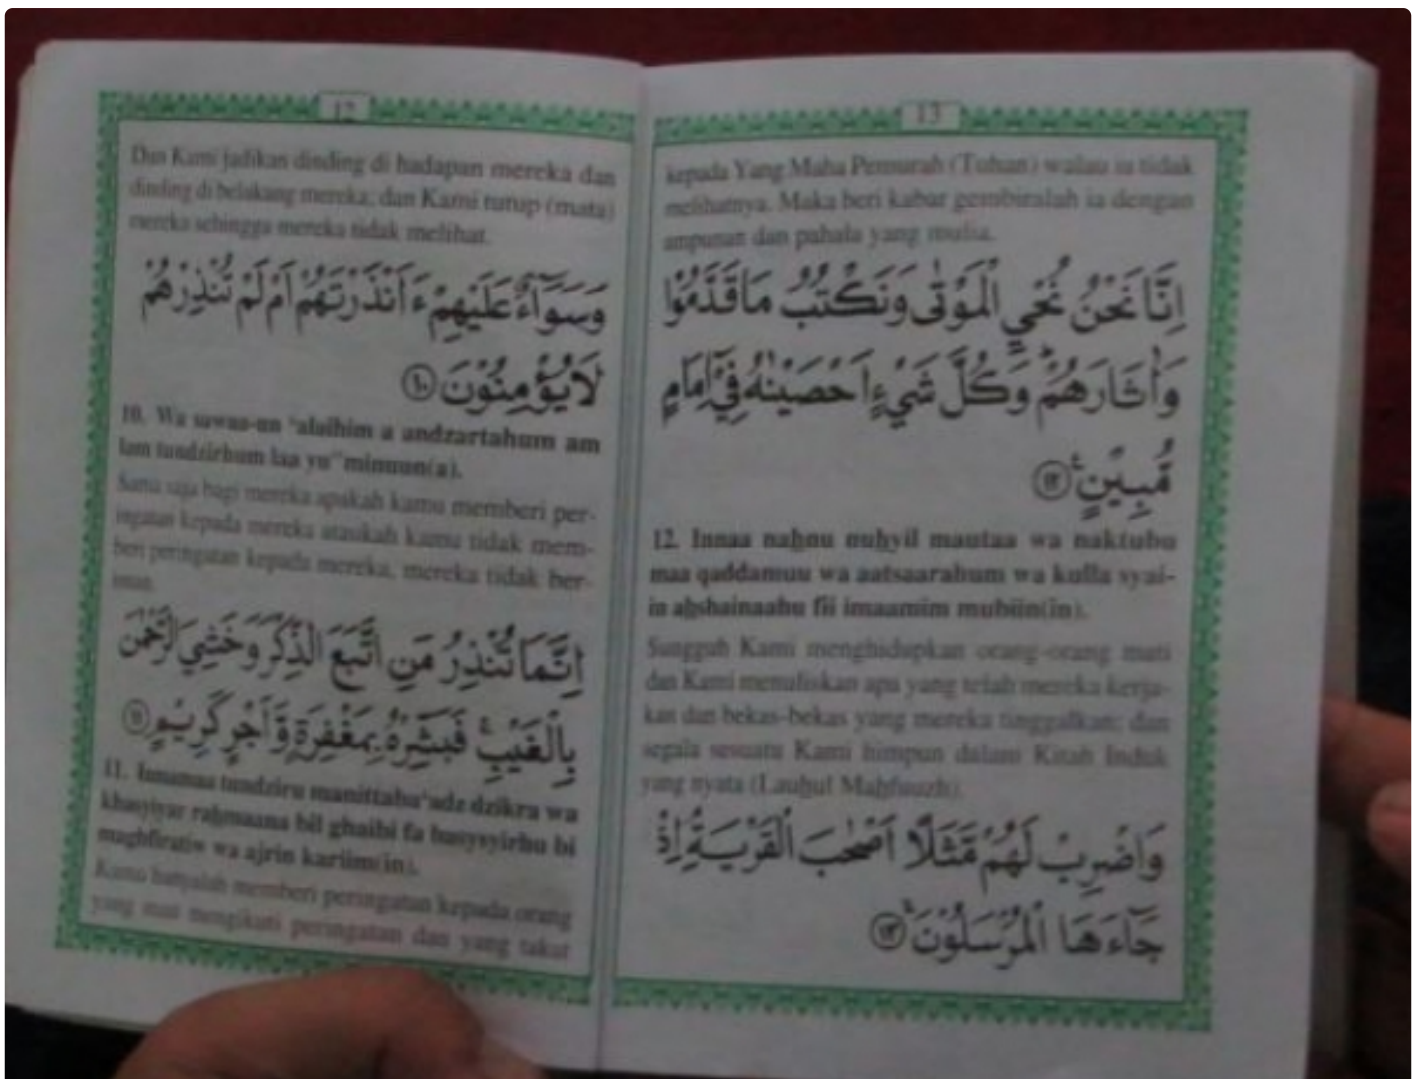 12
Dan Kami jadikan dinding di hadapan mereka dan
dinding di belakang mereka; dan Kami tutup (mata)
mereka sehingga mereka tidak melihat.
وَسَوَآءٌ عَلَيْهِمْ ءَاَنْذَرْتَهُمْ اَمْ لَمْ تُنْذِرْهُمْ
لَايُؤْمِنُوْنَ ⑩
10. Wa sawaa-un 'alaihim a andzartahum am
lam tundzirhum laa yu'minuun(a).
Sama saja bagi mereka apakah kamu memberi per-
ingatan kepada mereka ataukah kamu tidak mem-
beri peringatan kepada mereka, mereka tidak ber-
iman.
اِنَّمَا تُنْذِرُ مَنِ اتَّبَعَ الذِّكْرَ وَخَشِيَ الرَّحْمٰنَ
بِالْغَيْبِۚ فَبَشِّرْهُ بِمَغْفِرَةٍ وَّاَجْرٍ كَرِيْمٍ ⑪
11. Innamaa tundziru manittaba'adz dzikra wa
khasyiyar raḥmaana bil ghaibi fa basysyirhu bi
maghfiratiw wa ajrin kariim(in).
Kamu hanyalah memberi peringatan kepada orang
yang mau mengikuti peringatan dan yang takut
13
kepada Yang Maha Pemurah (Tuhan) walau ia tidak
melihatnya. Maka beri kabar gembiralah ia dengan
ampunan dan pahala yang mulia.
اِنَّا نَحْنُ نُحْيِ الْمَوْتٰى وَنَكْتُبُ مَاقَدَّمُوْا
وَاٰثَارَهُمْۗ وَكُلَّ شَيْءٍ اَحْصَيْنٰهُ فِيْٓ اِمَامٍ
مُّبِيْنٍ ࣖ ⑫
12. Innaa naḥnu nuḥyil mautaa wa naktubu
maa qaddamuu wa aatsaarahum wa kulla syai-
in aḥshainaahu fii imaamim mubiin(in).
Sungguh Kami menghidupkan orang-orang mati
dan Kami menuliskan apa yang telah mereka kerja-
kan dan bekas-bekas yang mereka tinggalkan; dan
segala sesuatu Kami himpun dalam Kitab Induk
yang nyata (Lauḥul Maḥfuuzh).
وَاضْرِبْ لَهُمْ مَّثَلًا اَصْحٰبَ الْقَرْيَةِۘ اِذْ
جَآءَهَا الْمُرْسَلُوْنَۚ ⑬